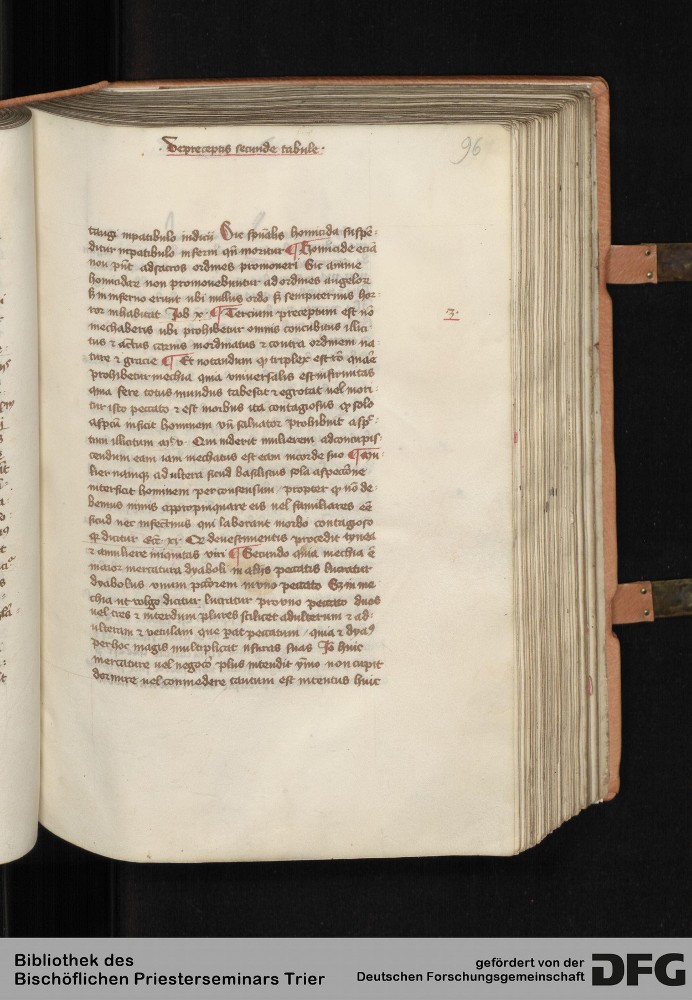 De preceptis secunde tabule
96
tang inpatibulo iudicii Sic spualis homicida suspe
ditur inpatibulo inferni qn moritur Homicide ecia
non pnt adsacros ordines promoueri Sic anime
homicidar non promouebuntur ad ordines angelor
s in inferno erunt ubi nullus ordo s sempiternus hor
ror inhabitat Job x Tercium preceptum est no
3
mechaberis ubi prohibetur omnis concubitus illici
tus et actus carnis inordinatus et contra ordinem na
ture et gracie Et notandum q triplex est ro quare
prohibetur mechia quia vniuersalis est infirmitas
quia fere totus mundus tabescit et egrotat uel mori
tur isto peccato et est morbus ita contagiosus q solo
aspcu inficit hominem vn saluator prohibuit asp
tum illicitum mt v Qui uiderit mulierem adconcupis
cendum eam iam mechatus est eam in corde suo Mu
lier namq adultera sicud basiliscus sola aspectione
interficit hominem per consensum propter q no de
bemus nimis appropinquare eis uel familiares ee
sicud nec infectinus qui laborant morbo contagioso
q dicitur Ecc xi De deuestimentis procedit tynea
et amuliere iniquitas viri Secundo quia mechia e
maior mercatura dyaboli in alijs peccatis lucratur
dyabolus vnum pctorem in vno peccato Sz in me
chia ut volgo dicitur lucratur pro vno peccato duos
uel tres et interdum plures scilicet adulterum et ad
ulteram et vetulam que pat peccatum quia et dya
per hoc magis multiplicat usuras suas Io huic
mercature uel negoco plus intendit ymo non cupit
dormire uel conmedere tantum est intentus huic
Bibliothek des
Bischöflichen Priesterseminars Trier
gefördert von der
Deutschen Forschungsgemeinschaft
DFG